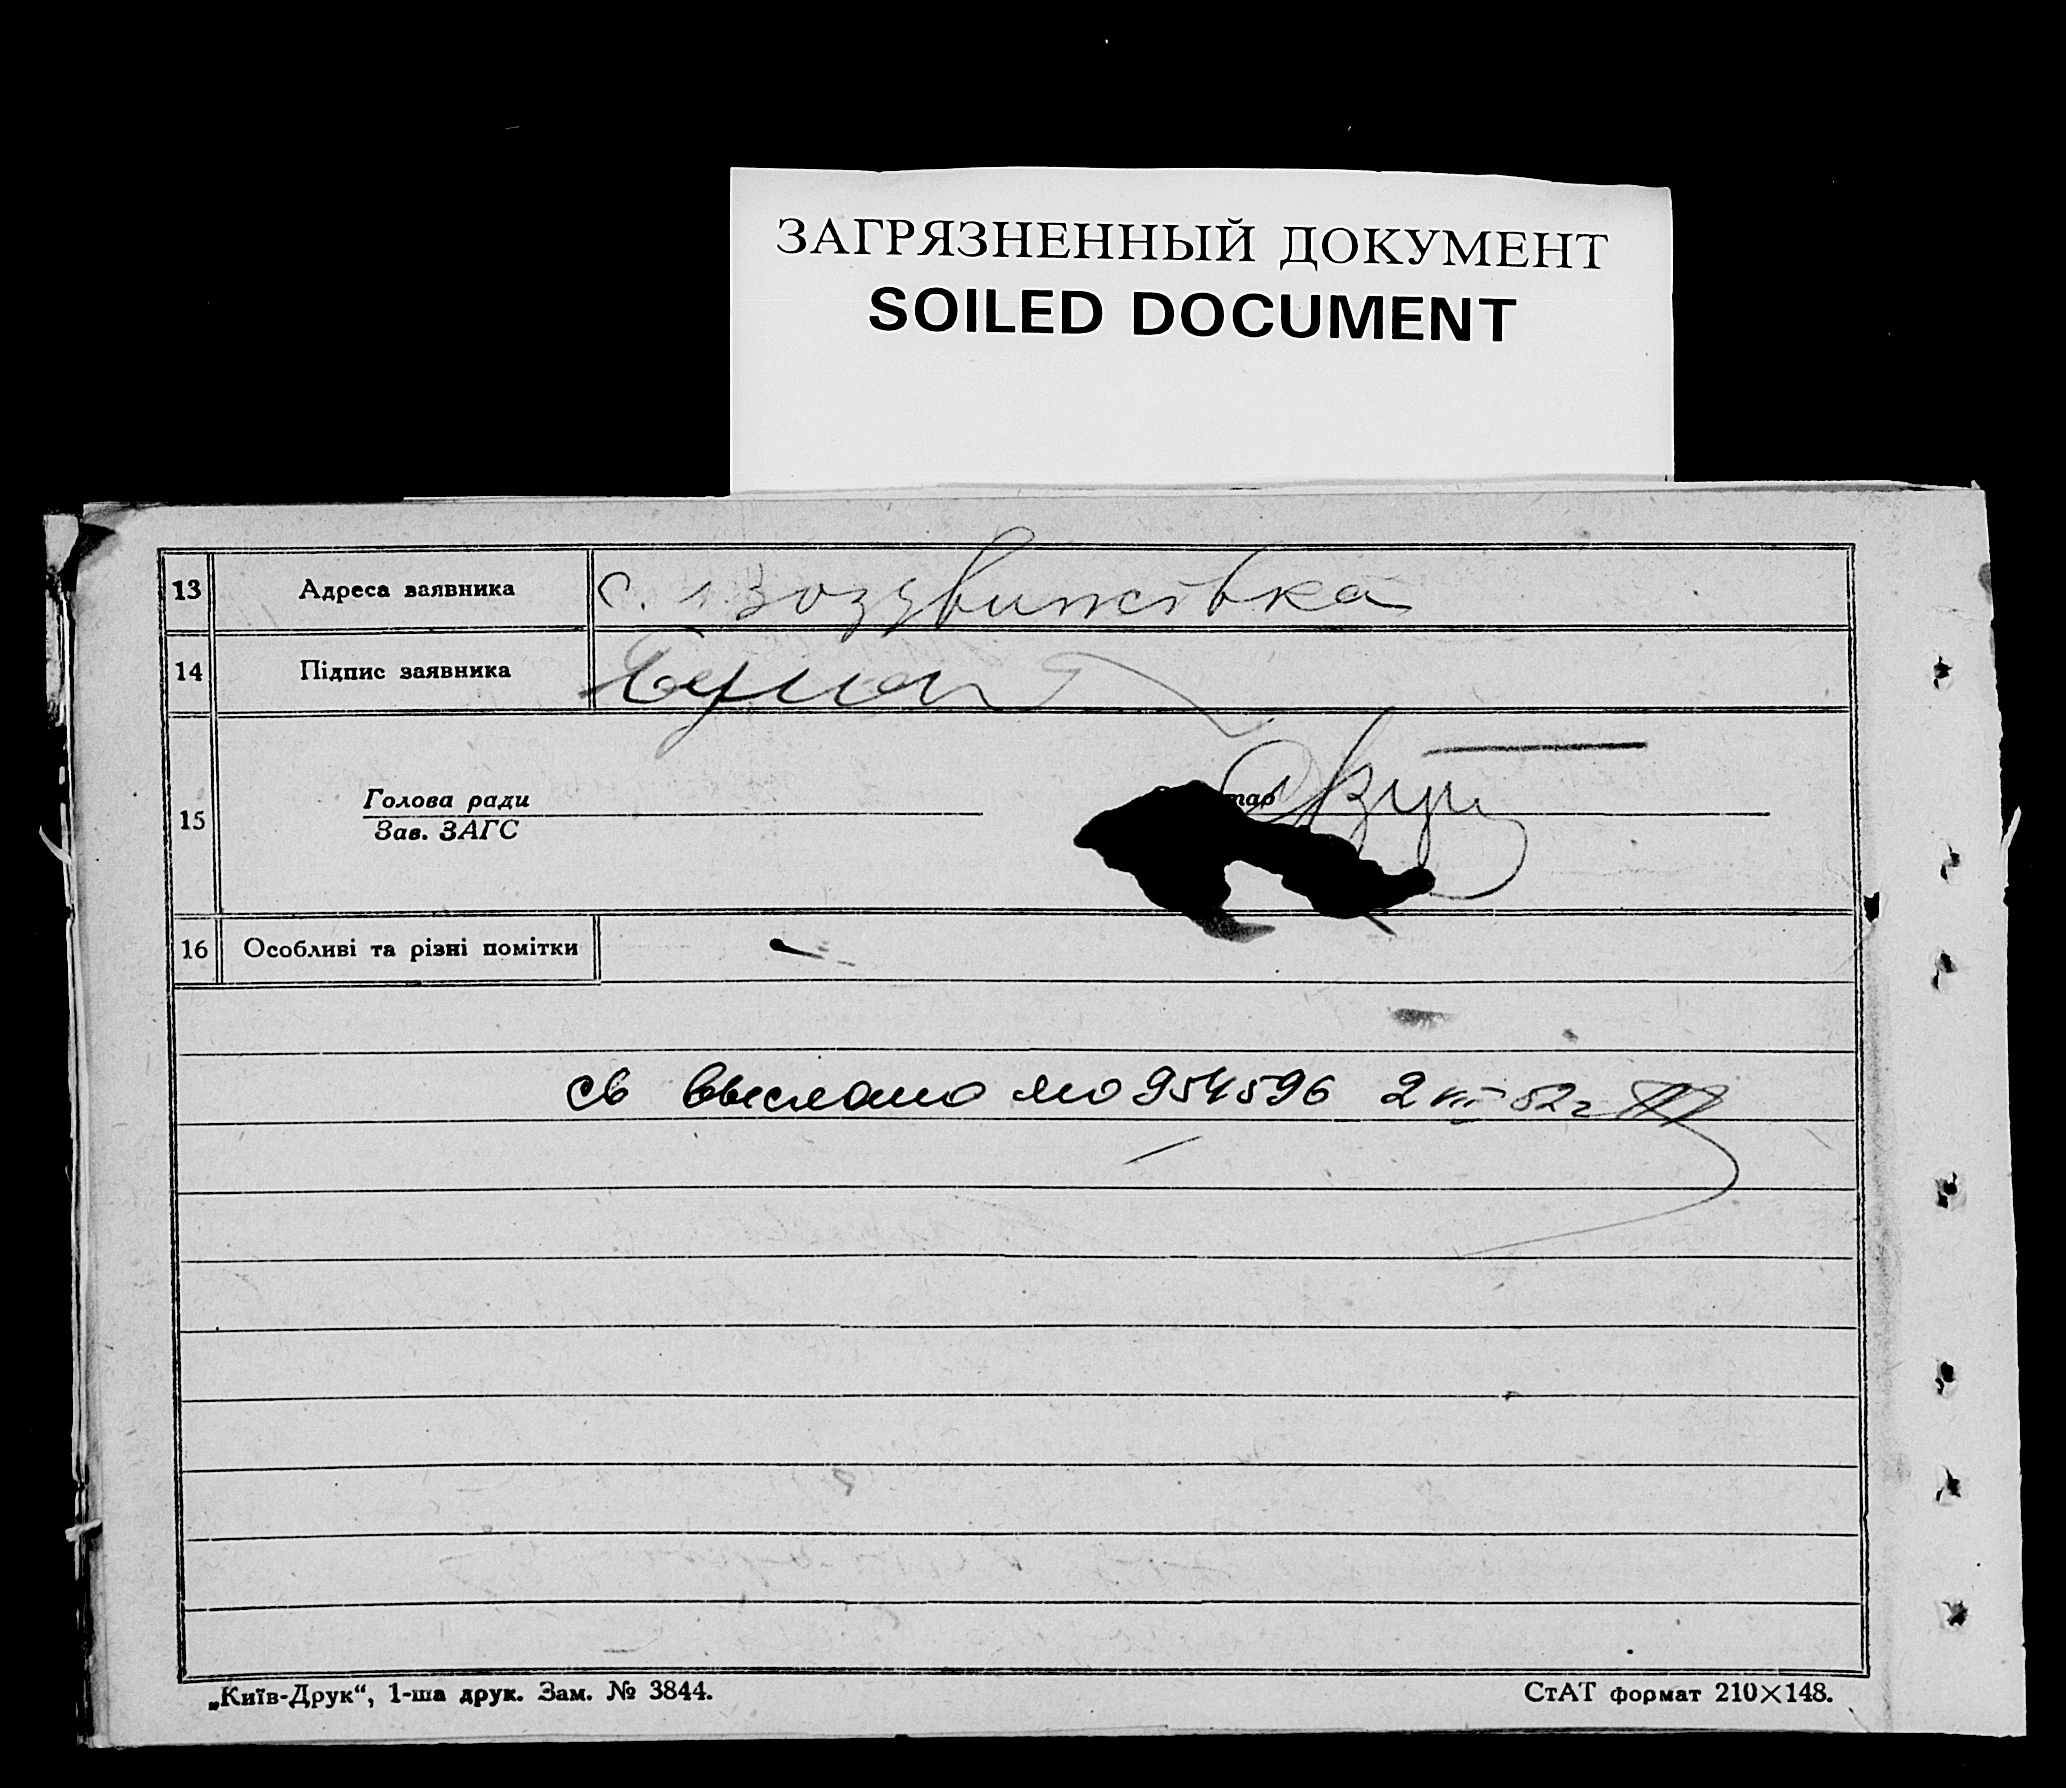 ЗАГРЯЗНЕННЫЙ ДОКУМЕНТ
SOILED DOCUMENT
13 Адреса заявника с. Воздвижівка
14 Підпис заявника
15 Голова ради
Зав. ЗАГС
16 Особливі та різні помітки
св выслано 954596 2 VII 52 г
„Київ-Друк“, 1-ша друк. Зам. № 3844. СтАТ формат 210×148.